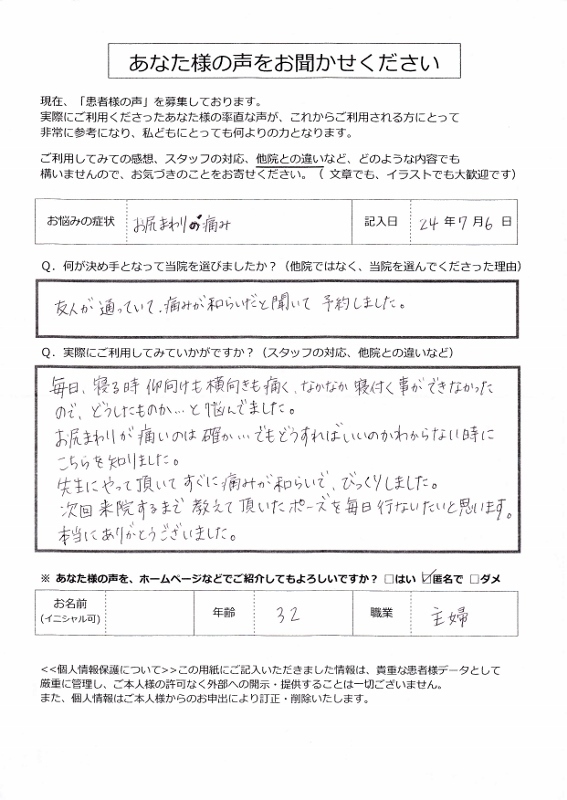 あなた様の声をお聞かせください
現在、「患者様の声」を募集しております。
実際にご利用くださったあなた様の率直な声が、これからご利用される方にとって
非常に参考になり、私どもにとっても何よりの力となります。
ご利用してみての感想、スタッフの対応、他院との違いなど、どのような内容でも
構いませんので、お気づきのことをお寄せください。（ 文章でも、イラストでも大歓迎です）
お悩みの症状 お尻まわりの痛み 記入日 24年 7月 6日
Q．何が決め手となって当院を選びましたか？（他院ではなく、当院を選んでくださった理由）
友人が通っていて、痛みが和らいだと聞いて 予約しました。
Q．実際にご利用してみていかがですか？（スタッフの対応、他院との違いなど）
毎日、寝る時 仰向けも横向きも痛く、なかなか寝付く事ができなかった
ので、どうしたものか…と悩んでました。
お尻まわりが痛いのは確か…でもどうすればいいのかわからない時に
こちらを知りました。
先生にやって頂いてすぐに痛みが和らいで、びっくりしました。
次回来院するまで 教えて頂いたポーズを毎日行ないたいと思います。
本当にありがとうございました。
※ あなた様の声を、ホームページなどでご紹介してもよろしいですか？ □はい ☑匿名で □ダメ
お名前
(イニシャル可) 年齢 32 職業 主婦
<<個人情報保護について>>この用紙にご記入いただきました情報は、貴重な患者様データとして
厳重に管理し、ご本人様の許可なく外部への開示・提供することは一切ございません。
また、個人情報はご本人様からのお申出により訂正・削除いたします。